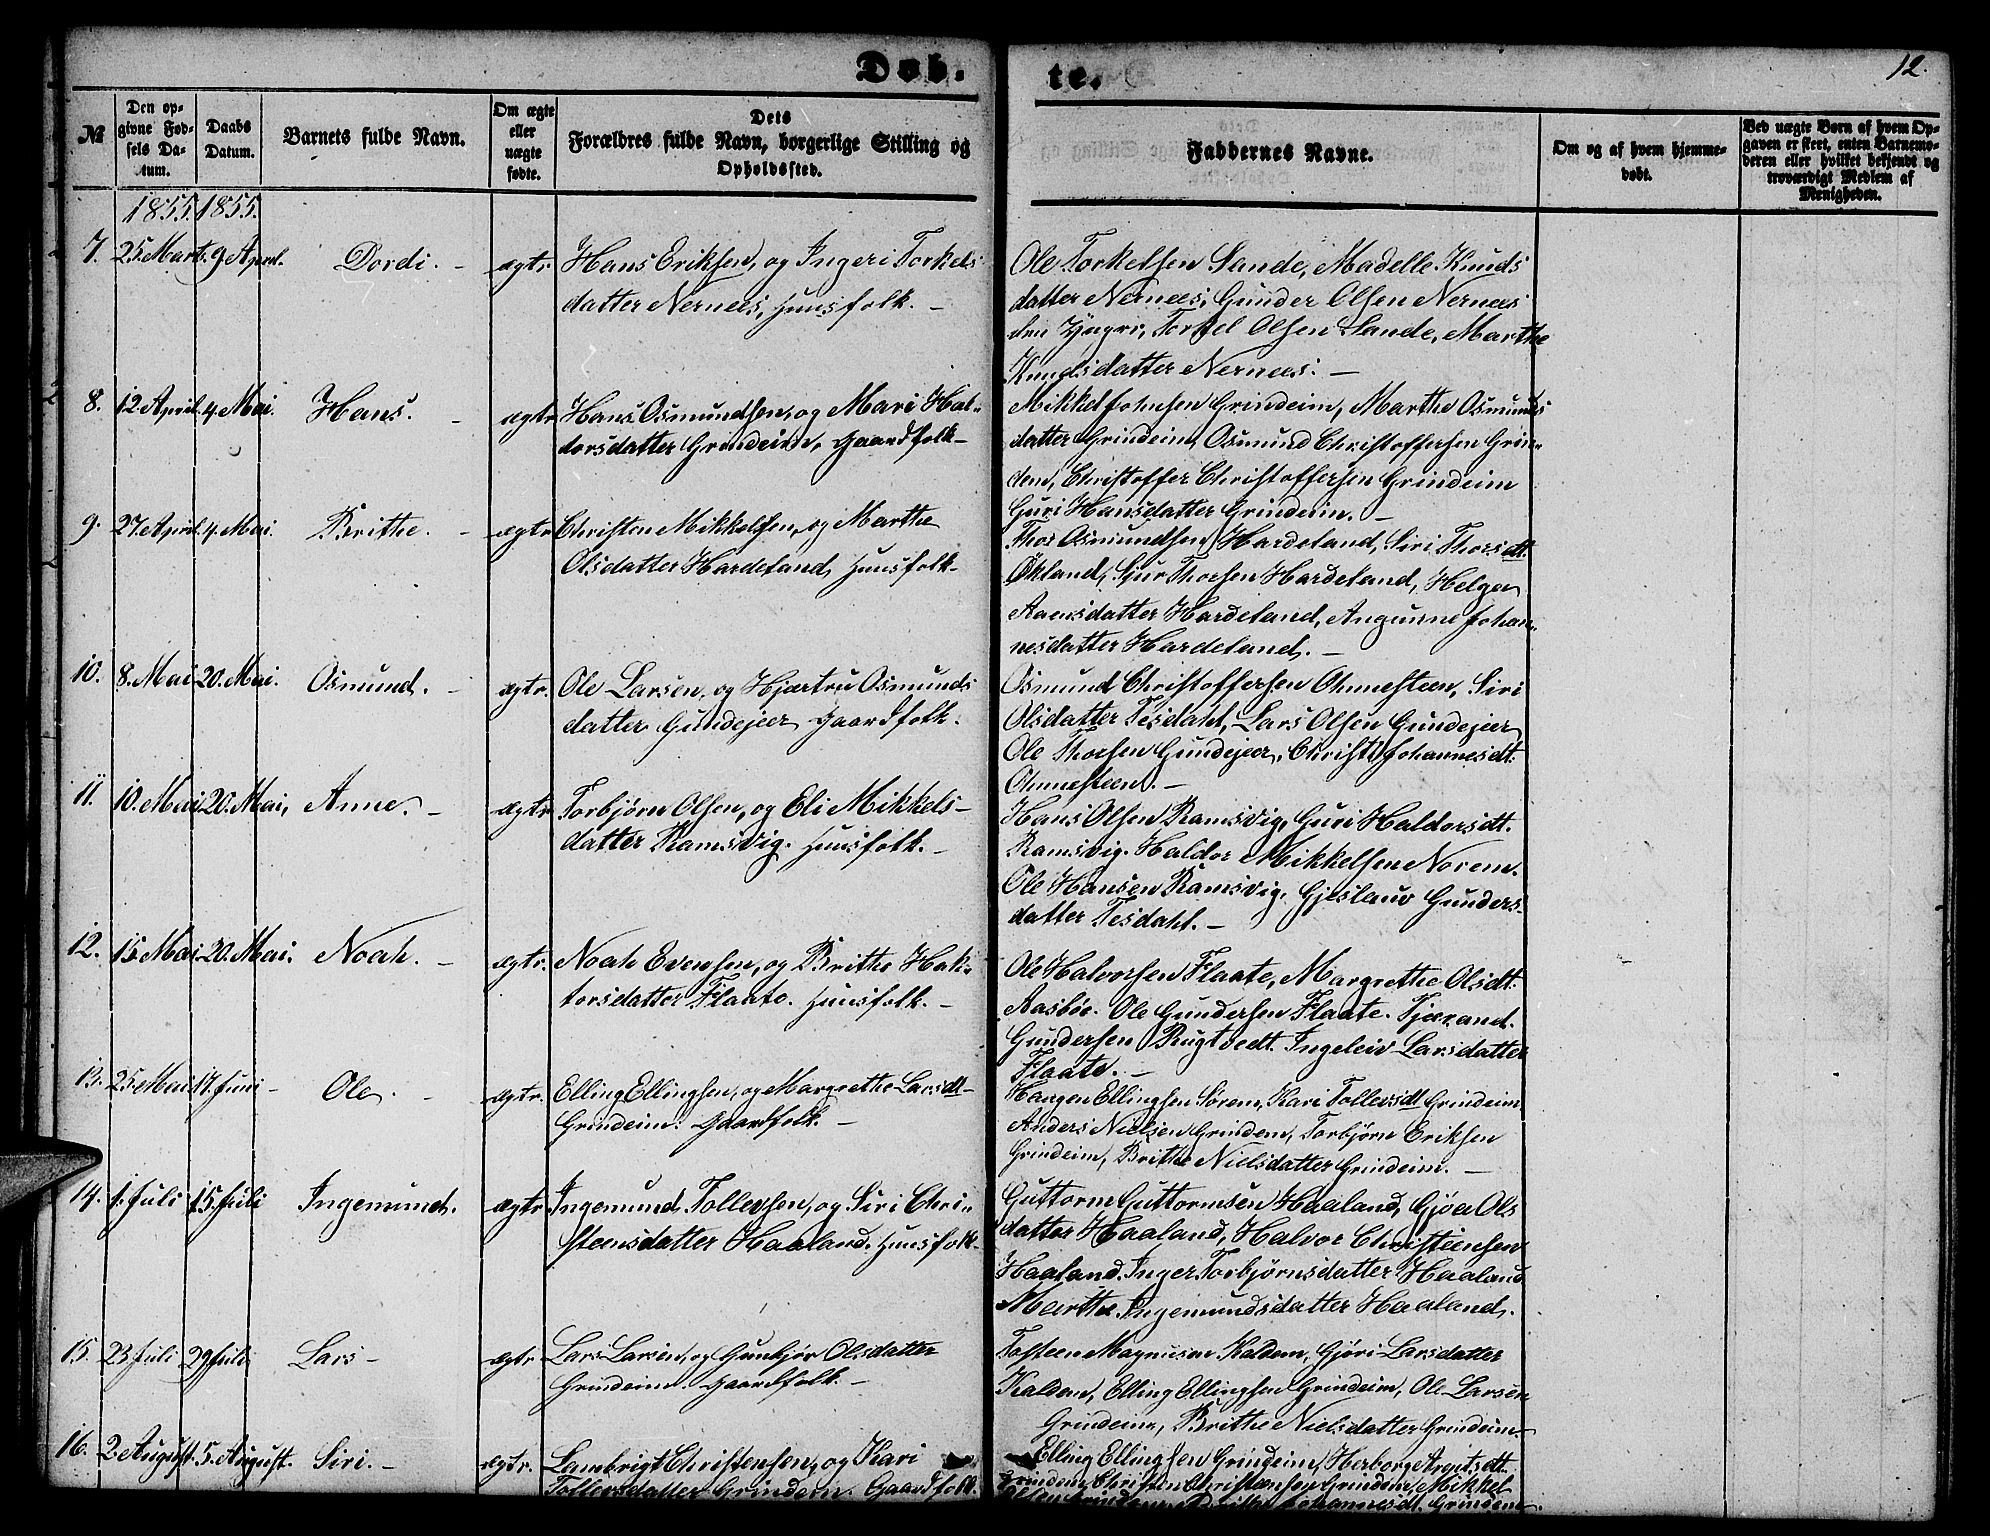 Døb. te. 12.
№
Den op-
givne Fød-
sels Da-
tum.
Daabs
Datum.
Barnets fulde Navn.
Om ægte
eller
uægte
fødte.
Dets
Forældres fulde Navn, borgerlige Stilling og
Opholdssted.
Faddernes Navne.
Om og af hvem hjemme-
døbt.
Ved uægte Børn af hvem Op-
gaven er skeet, enten Barnemo-
deren eller hvilket bekjendt og
troværdigt Medlem af
Menigheden.
1855. 1855.
7. 25. Marts. 9 April. Dordi. - ægte. Hans Eriksen, og Ingeri Torkels
datter Nernæs, Huusfolk. -
Ole Torkelsen Sande, Madelle Knuds
datter Nernæs, Gunder Olsen Nernæs
den Yngre, Torkel Olsen Sande, Marthe
Knudsdatter Nernæs. -
8. 12. April. 4. Mai. Hans. - ægte Hans Osmundsen, og Mari Hal-
dorsdatter Grindeim, Gaardfolk -
Mikkel Johnsen Grindeim, Marthe Osmunds
datter Grindeim, Osmund Christoffersen Grin-
dem, Christoffer Christoffersen Grindeim
Guri Hansdatter Grindeim. -
9. 27. April. 4. Mai. Brithe. - ægte Christen Mikkelsen, og Marthe
Olsdatter Hardeland, Huusfolk -
Thor Osmundsen Hardeland, Siri Thorsdt.
Økland, Sjur Thorsen Hardeland, Helga
Aamsdatter Hardeland, Angunne Johan-
nesdatter Hardeland. -
10. 8. Mai 20. Mai. Osmund. - ægte. Ole Larsen, og Hjertru Osmunds
datter Gundejer Gaardfolk.
Osmund Christoffersen Ohnesteen, Siri
Olsdatter Tesdahl, Lars Olsen Gundejer
Ole Thorsen Gundejer, Christi Johannesdt.
Ohnesteen. -
11. 10. Mai 20. Mai, Anne. - ægte Torbjørn Olsen, og Eli Mikkels-
datter Ramsvig. Huusfolk. -
Hans Olsen Ramsvig, Guri Haldorsdt.
Ramsvig. Haldor Mikkelsen Norem.
Ole Hansen Ramsvig, Gjeslaug Gunders-
datter Tesdahl. -
12. 15. Mai 20. Mai. Noah. - ægte. Noah Evensen, og Brithe Hak-
torsdatter Flaate. Huusfolk. -
Ole Halvorsen Flaate, Margrethe Olsdt.
Aasbøe. Ole Gundersen Flaate. Tjerand.
Gundersen Rugtvedt. Ingeleiv Larsdatter
Flaate. -
13. 25. Mai 17. Juni - Ole. - ægte. Elling Ellingsen, og Margrethe Larsdt -
Grindeim. Gaardfolk. -
Haugen Ellingsen Sørem, Kari Tollevsdt Grindeim.
Anders Nielsen Grindem, Torbjørn Eriksen
Grindeim, Brithe Nielsdatter Grindeim. -
14. 1. Juli 15. Juli Ingemund. ægte Ingemund Tollevsen, og Siri Chri-
steensdatter Haaland. Huusfolk -
Guttorm Guttormsen Haaland, Gjøa Ols
datter Haaland, Halvor Christeensen
Haaland. Inger Torbjørnsdatter Haaland
Marthe Ingemundsdatter Haaland.
15. 23 Juli 29 Juli Lars - ægte Lars Larsen, og Gunbjør Olsdatter
Grindeim. Gaardfolk. -
Tosteen Magnusen Kaldem, Gjøri Larsdatter
Kaldem, Elling Ellingsen Grindeim, Ole Larsen
Grindeim, Brithe Nielsdatter Grindeim.
16. 2. August. 5. August. Siri. - ægte. Lambrigt Christensen, og Kari
Tollevsdatter Grindem. Gaardfolk.
Elling Ellingsen Grindeim, Herborg
Grindem, Christen Christensen Grindem, Mikkel
Olsen Grindem, Brithe Johannesdt. Grindem.